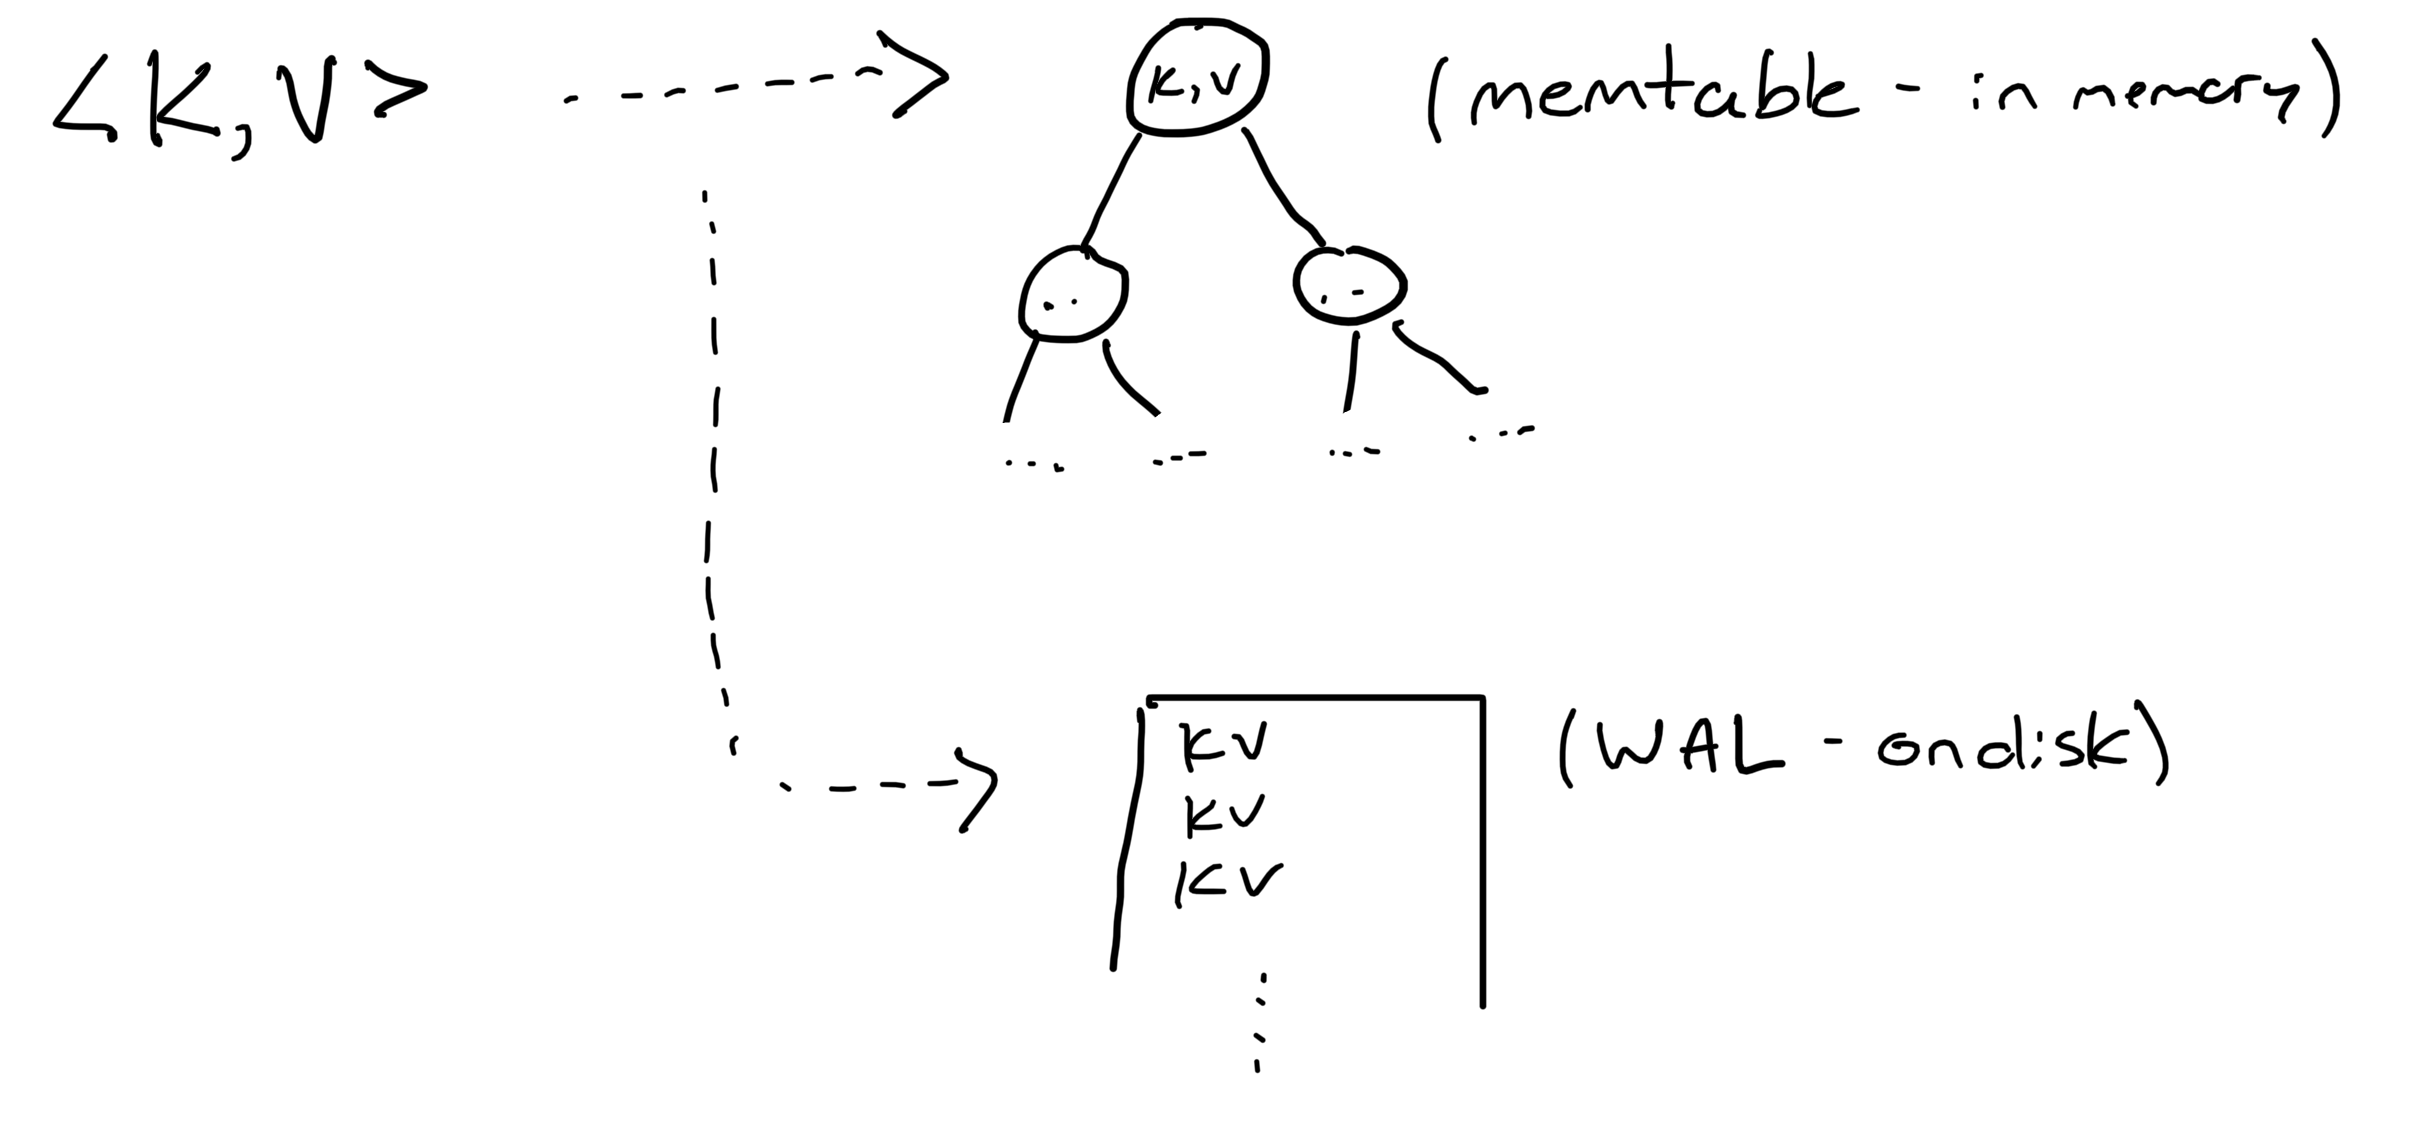 <K,V>
K,V
(memtable - in memory)
KV
KV
KV
(WAL - on disk)